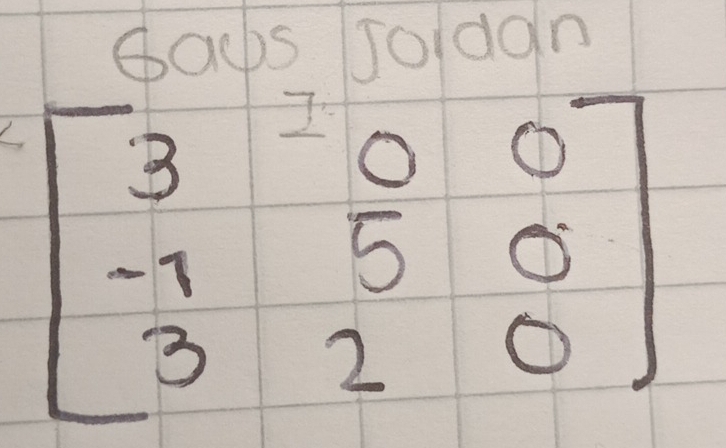 Gaus Jordan
3 0 0
-1 5 0
3 2 0